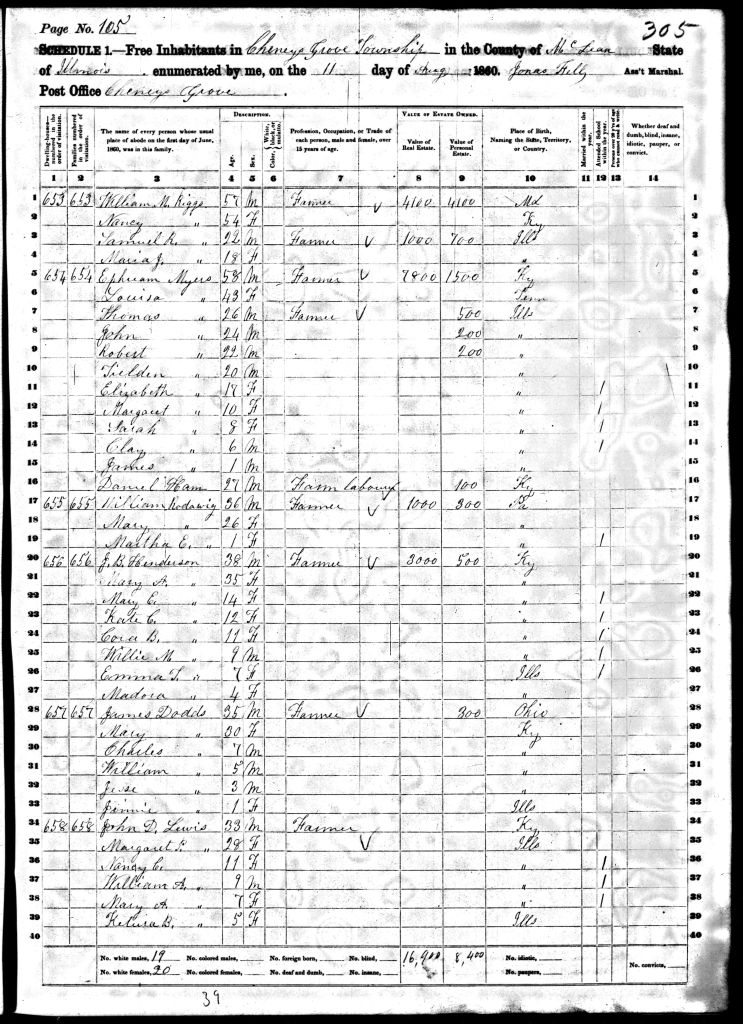 Page No. 105
305
SCHEDULE 1.—Free Inhabitants in Cheneys Grove Township in the County of McLean State
of Illinois enumerated by me, on the 11 day of Aug 1860. Jonas Ass't Marshal.
Post Office Cheneys Grove
DESCRIPTION. VALUE OF ESTATE OWNED.
Dwelling-houses— numbered in the order of visitation. Families numbered in the order of visitation. The name of every person whose usual place of abode on the first day of June, 1860, was in this family. Age. Sex. Color, White, black, or mulatto. Profession, Occupation, or Trade of each person, male and female, over 15 years of age. Value of Real Estate. Value of Personal Estate. Place of Birth, Naming the State, Territory, or Country. Married within the year. Attended School within the year. Persons over 20 y'rs of age who cannot read & write. Whether deaf and dumb, blind, insane, idiotic, pauper, or convict.
1 2 3 4 5 6 7 8 9 10 11 12 13 14
1 653 653 William M. Riggs 57 M Farmer 4100 4100 Md 1
2 Nancy " 54 F Ky 2
3 Samuel R. " 22 M Farmer 1000 700 Ills 3
4 Maria J. " 18 F " 4
5 654 654 Ephriam Myers 58 M Farmer 7800 1500 Ky 5
6 Louisa " 43 F Tenn 6
7 Thomas " 26 M Farmer 500 Ills 7
8 John " 24 M 200 " 8
9 Robert " 22 M 200 " 9
10 Tielden " 20 M " 10
11 Elizabeth " 17 F " 1 11
12 Margaret " 10 F " 1 12
13 Sarah " 8 F " 1 13
14 Clay " 6 M " 1 14
15 James " 1 M " 15
16 Daniel Ham 27 M Farm labourer 100 Ky 16
17 655 655 William Rodawig 36 M Farmer 1000 300 Pa 17
18 Mary " 26 F " 18
19 Martha E. " 1 F " 1 19
20 656 656 J. B. Henderson 38 M Farmer 3000 500 Ky 20
21 Mary A. " 35 F " 21
22 Mary E. " 14 F " 1 22
23 Kate C. " 12 F " 1 23
24 Cora B. " 11 F " 1 24
25 Willie M. " 9 M " 1 25
26 Emma T. " 7 F Ills 1 26
27 Madora " 4 F " 27
28 657 657 James Dodds 35 M Farmer 300 Ohio 28
29 Mary " 30 F Ky 29
30 Charles " 7 M " 30
31 William " 5 M " 31
32 Jesse " 3 M " 32
33 Jinnie " 1 F Ills 33
34 658 658 John D. Lewis 33 M Farmer Ky 34
35 Margaret P. " 28 F Ills 35
36 Nancy C. " 11 F " 1 36
37 William A. " 9 M " 1 37
38 Mary A. " 7 F " 1 38
39 Ketura B. " 5 F Ills 39
40 40
No. white males, 19 No. colored males, No. foreign born, No. blind, 16,900 8,400 No. idiotic,
No. white females, 20 No. colored females, No. deaf and dumb, No. insane, No. paupers, No. convicts,
39